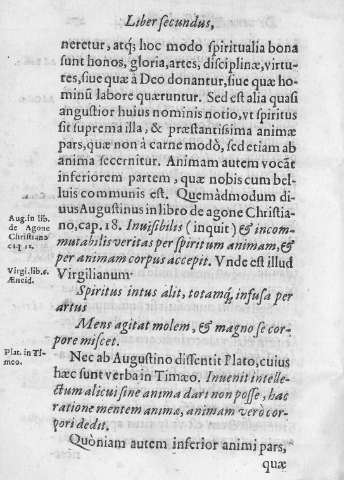 Liber secundus,
neretur, atq; hoc modo spiritualia bona
sunt honos, gloria, artes, disciplinæ, virtu-
tes, siue quæ à Deo donantur, siue quæ ho-
minũ labore quæruntur. Sed est alia quasi
angustior huius nominis notio, vt spiritus
sit suprema illa, & præstantissima animæ
pars, quæ non à carne modò, sed etiam ab
anima secernitur. Animam autem vocãt
inferiorem partem, quæ nobis cum bel-
luis communis est. Quemàdmodum di-
uus Augustinus in libro de agone Christia-
no, cap. 18. Inuisibilis (inquit) & incom-
mutabilis veritas per spiritum animam, &
per animam corpus accepit. Vnde est illud
Virgilianum
Spiritus intus alit, totamq; infusa per
artus
Mens agitat molem, & magno se cor-
pore miscet.
Nec ab Augustino dissentit Plato, cuius
hæc sunt verba in Timæo. Inuenit intelle-
ctum alicui sine anima dari non posse, hac
ratione mentem animæ, animam verò cor-
pori dedit.
Quòniam autem inferior animi pars,
quæ
Aug. in lib.
de Agone
Christiano
Virgil. lib. 6.
Æneid.
Plat. in Ti-
mæo.